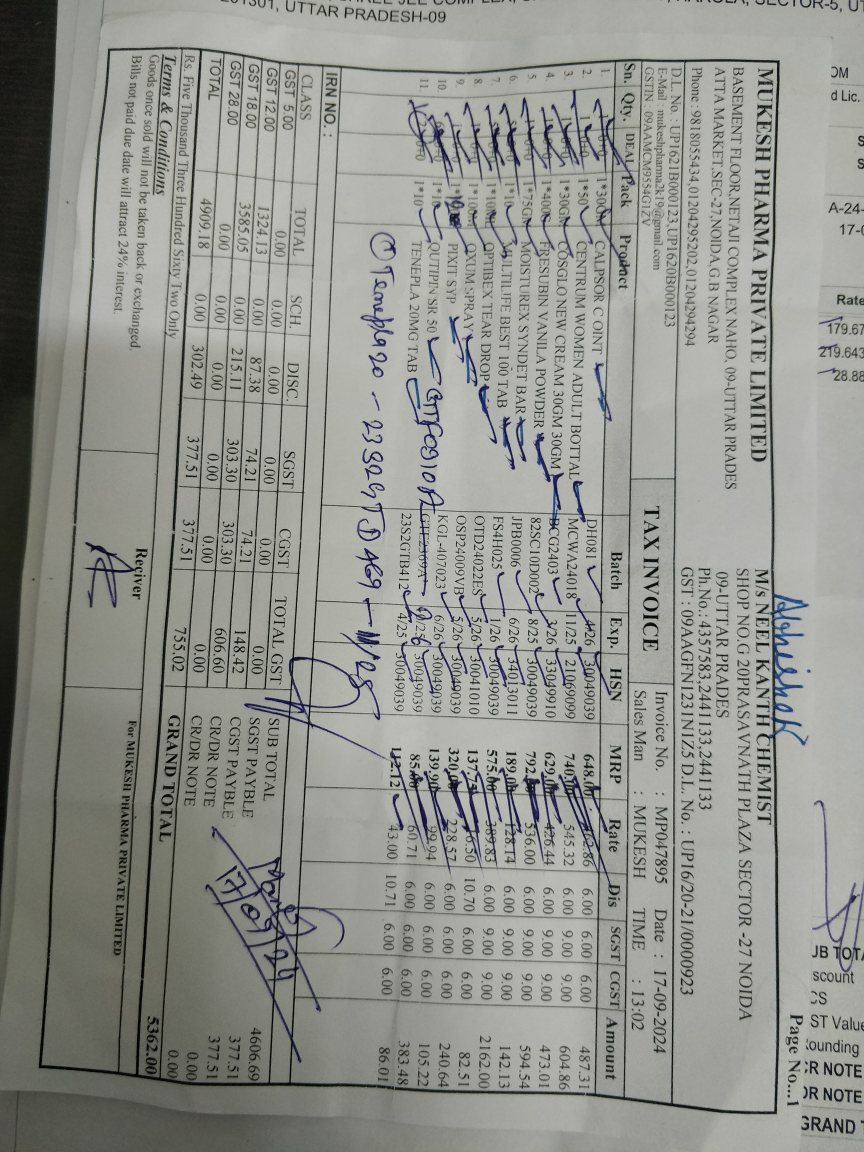 201301, UTTAR PRADESH-09
MUKESH PHARMA PRIVATE LIMITED
BASEMENT FLOOR,NETAJI COMPLEX NAHO, 09-UTTAR PRADES
ATTA MARKET,SEC-27,NOIDA,G.B NAGAR
Phone : 9818055434,01204295202,01204294294
D.L. No. : UP1621B000123,UP1620B000123
E-Mail : mukeshpharma2k19@gmail.com
GSTIN : 09AAMCM9554G1ZV
TAX INVOICE
Abhishek
M/s NEEL KANTH CHEMIST
SHOP NO.G 20PRASAVNATH PLAZA SECTOR -27 NOIDA
09-UTTAR PRADES
Ph.No.: 4357583,2441133,2441133
GST : 09AAGFN1231N1Z5 D.L. No. : UP16/20-21/0000923
Invoice No. : MP047895 Date : 17-09-2024
Sales Man : MUKESH TIME : 13:02
Page No...1
Sn. Qty. DEAL Pack Product Batch Exp. HSN MRP Rate Dis SGST CGST Amount
1. 1*30GM CALPSOR C OINT DH081 4/26 30049039 648.00 462.86 6.00 6.00 6.00 487.31
2. 1*50 CENTRUM WOMEN ADULT BOTTAL MCWA24018 11/25 21069099 740.00 545.32 6.00 9.00 9.00 604.86
3. 1*30GM COSGLO NEW CREAM 30GM 30GM BCG2403 3/26 33049910 629.00 426.44 6.00 9.00 9.00 473.01
4. 1*400G FRESUBIN VANILA POWDER 82SC10D002 8/25 30049039 792.00 536.00 6.00 9.00 9.00 594.54
5. 1*75GM MOISTUREX SYNDET BAR JPB0006 6/26 34013011 189.00 128.14 6.00 9.00 9.00 142.13
6. 1*10 BEST 100 TAB FS4H025 1/26 30049039 575.00 389.83 6.00 9.00 9.00 2162.00
7. 1*10ML OPTIBEX TEAR DROP OTD24022ES 5/26 30041010 137.75 10.70 6.00 6.00 82.51
8. 1*100M OXUM SPRAY OSP24009VB 5/26 30049039 320.00 228.57 6.00 6.00 6.00 240.64
9. PIXIT SYP KGL-407023 6/26 30049039 139.90 99.94 6.00 6.00 6.00 105.22
10. 1*10 QUTIPIN SR 50 GTF0310A GTE2369A 30049039 85.00 60.71 6.00 6.00 6.00 383.48
11. 1*10 TENEPLA 20MG TAB 23S2GTB412 4/25 30049039 112.12 43.00 10.71 6.00 6.00 86.01
Tenepla 20 - 23S2GTD469 - 11/25
IRN NO. :
CLASS TOTAL SCH. DISC. SGST CGST TOTAL GST
GST 5.00 0.00 0.00 0.00 0.00 0.00 0.00
GST 12.00 1324.13 0.00 87.38 74.21 74.21 148.42
GST 18.00 3585.05 0.00 215.11 303.30 303.30 606.60
GST 28.00 0.00 0.00 0.00 0.00 0.00 0.00
TOTAL 4909.18 0.00 302.49 377.51 377.51 755.02
SUB TOTAL 4606.69
SGST PAYBLE 377.51
CGST PAYBLE 377.51
CR/DR NOTE 0.00
CR/DR NOTE 0.00
17/09/24
Rs. Five Thousand Three Hundred Sixty Two Only
GRAND TOTAL 5362.00
Terms & Conditions
Goods once sold will not be taken back or exchanged.
Bills not paid due date will attract 24% interest.
Reciver
For MUKESH PHARMA PRIVATE LIMITED
d Lic.
A-24-
Rate
179.67
219.643
28.88
JB TOTA
scount
ST Value
ounding
R NOTE
R NOTE
GRAND